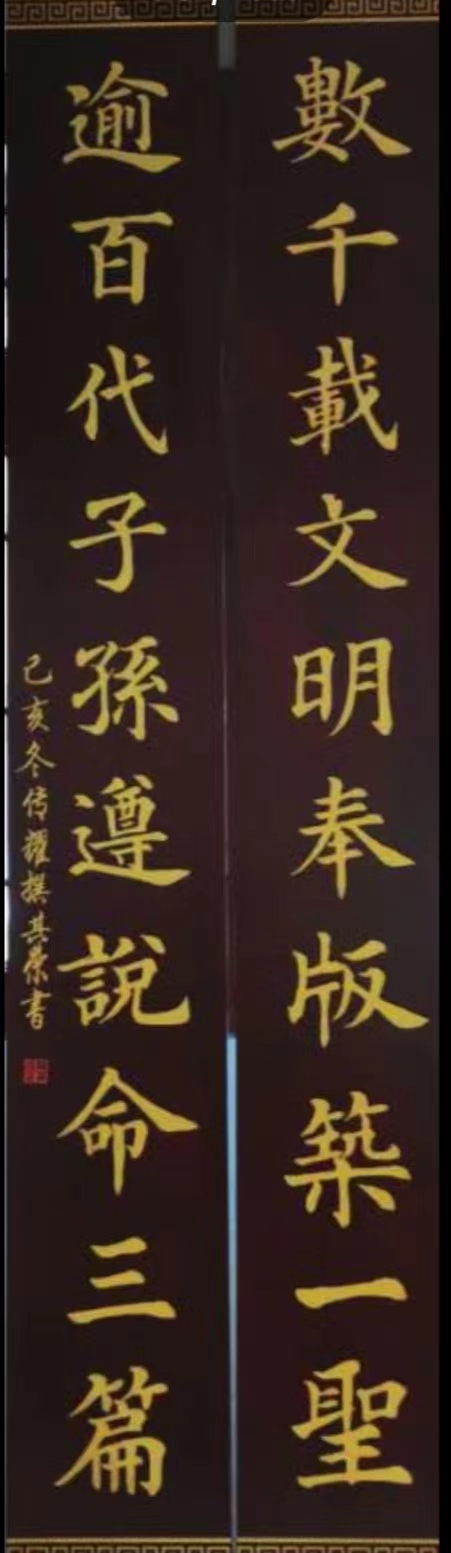 數千載文明奉版築一聖
逾百代子孫遵說命三篇
己亥冬传耀撰其荣書